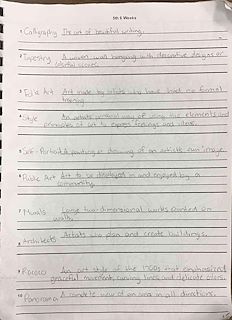 5th 6 Weeks
Calligraphy The art of beautiful writing.
Tapestry A woven wall hanging with decorative designs or
colorful scenes.
Folk Art Art made by artists who have had no formal
training.
Style An artist's way of using the elements and
principles of art to express feelings and ideas.
Self-Portrait A painting or drawing of an artist's own image.
Public Art Art to be displayed in and enjoyed by a
community.
Murals Large two-dimensional works painted on
walls.
Architects Artists who plan and create buildings.
Rococo An art style of the 1700s that emphasized
graceful movement, curving lines, and delicate colors.
10 Panorama A complete view of an area in all directions.